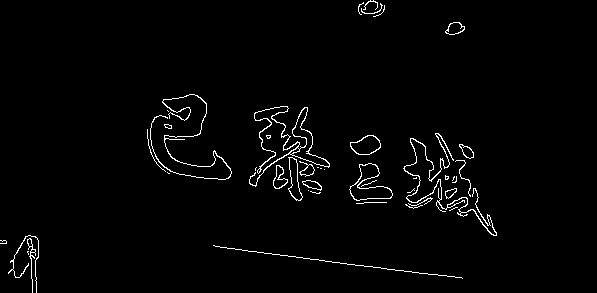 巴黎三城